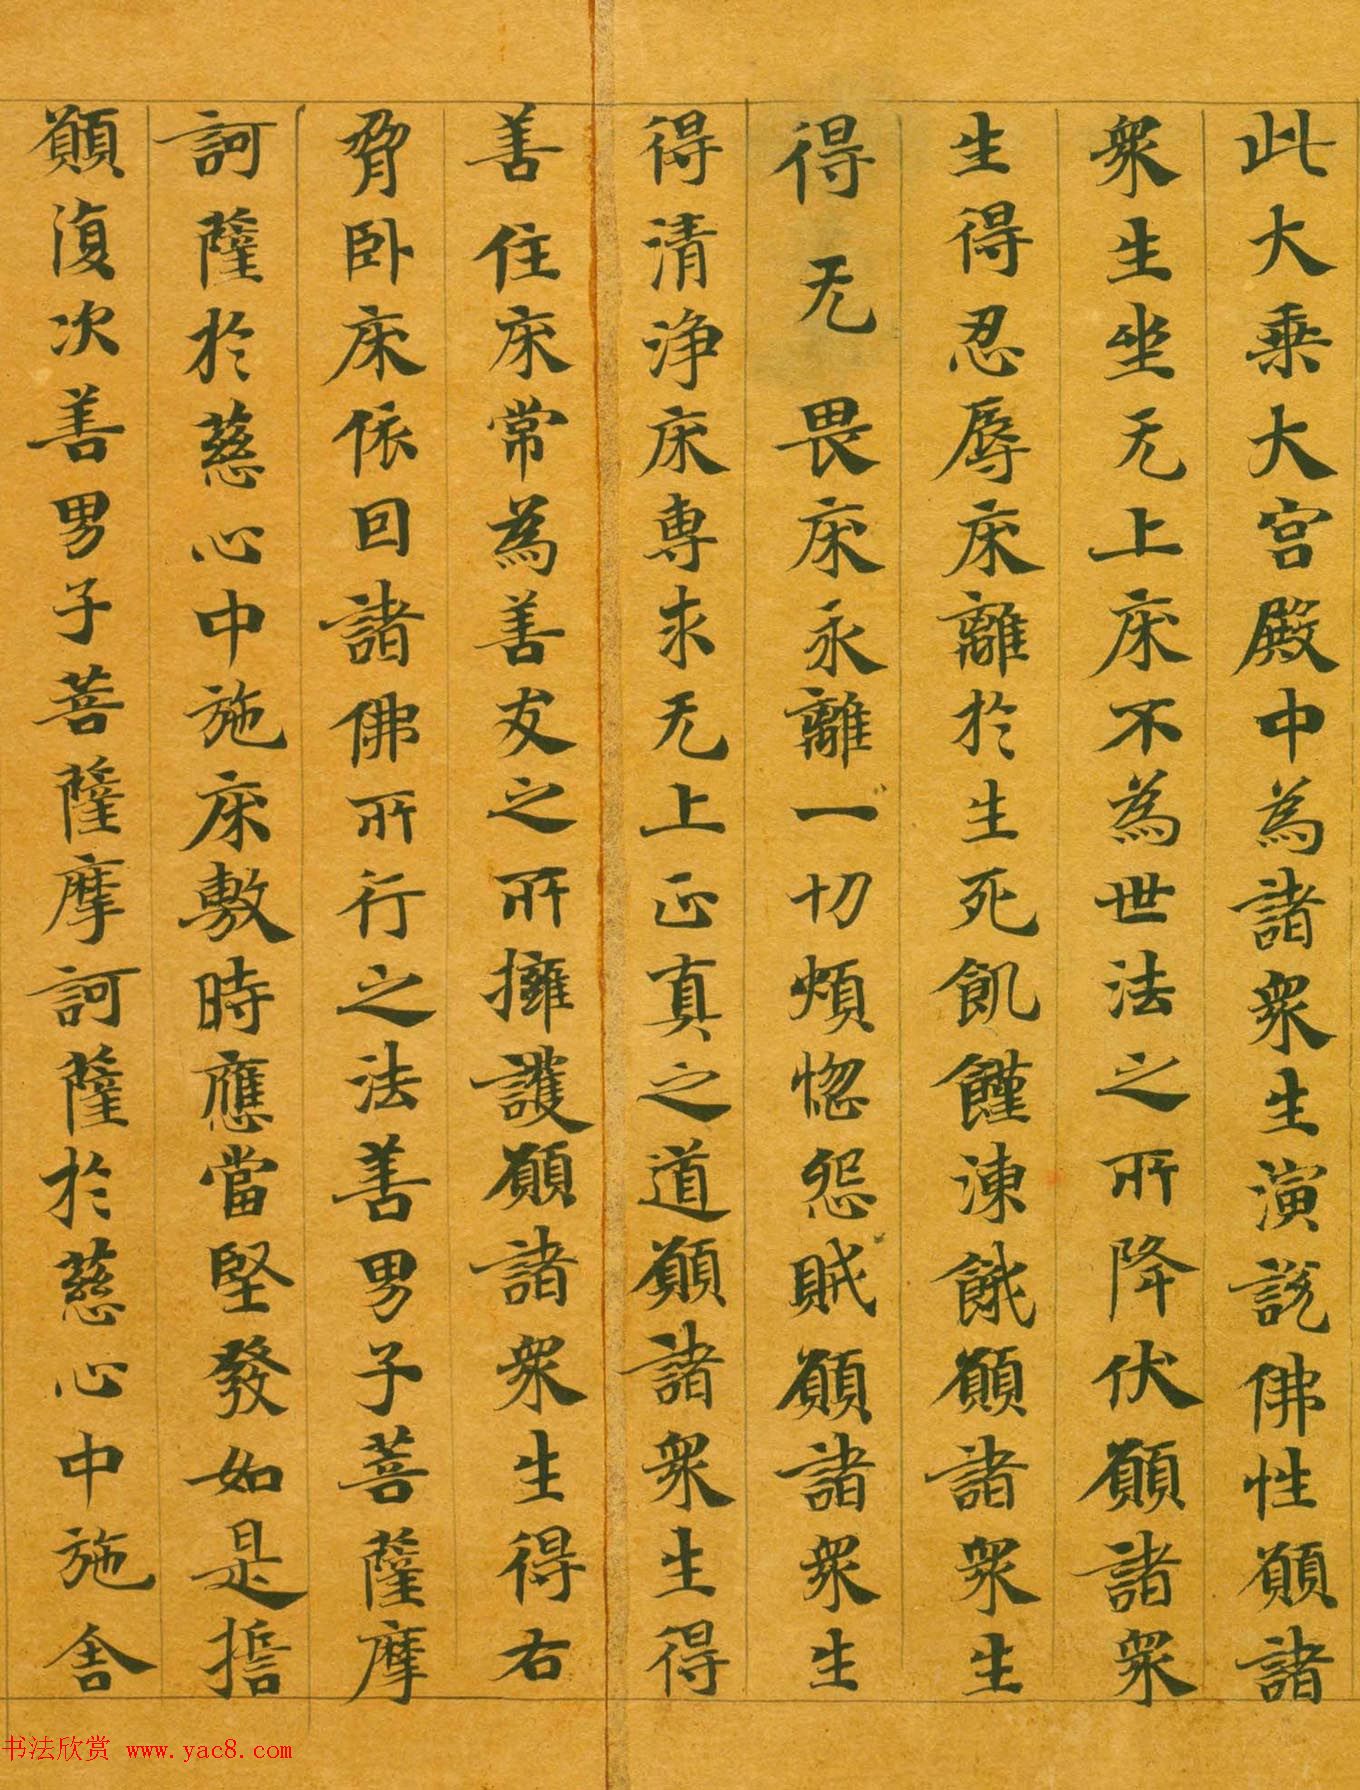 此大乗大宮殿中為諸衆生演說佛性願諸
衆生坐无上床不為世法之所降伏願諸衆
生得忍辱床離於生死飢饉凍餓願諸衆生
得无畏床永離一切煩惚怨賊願諸衆生
得清浄床専求无上正真之道願諸衆生得
善住床常為善友之所擁護願諸衆生得右
脅卧床依回諸佛所行之法善男子菩薩摩
訶薩於慈心中施床敷時應當堅發如是誓
願復次善男子菩薩摩訶薩於慈心中施舎
书法欣赏 www.yac8.com